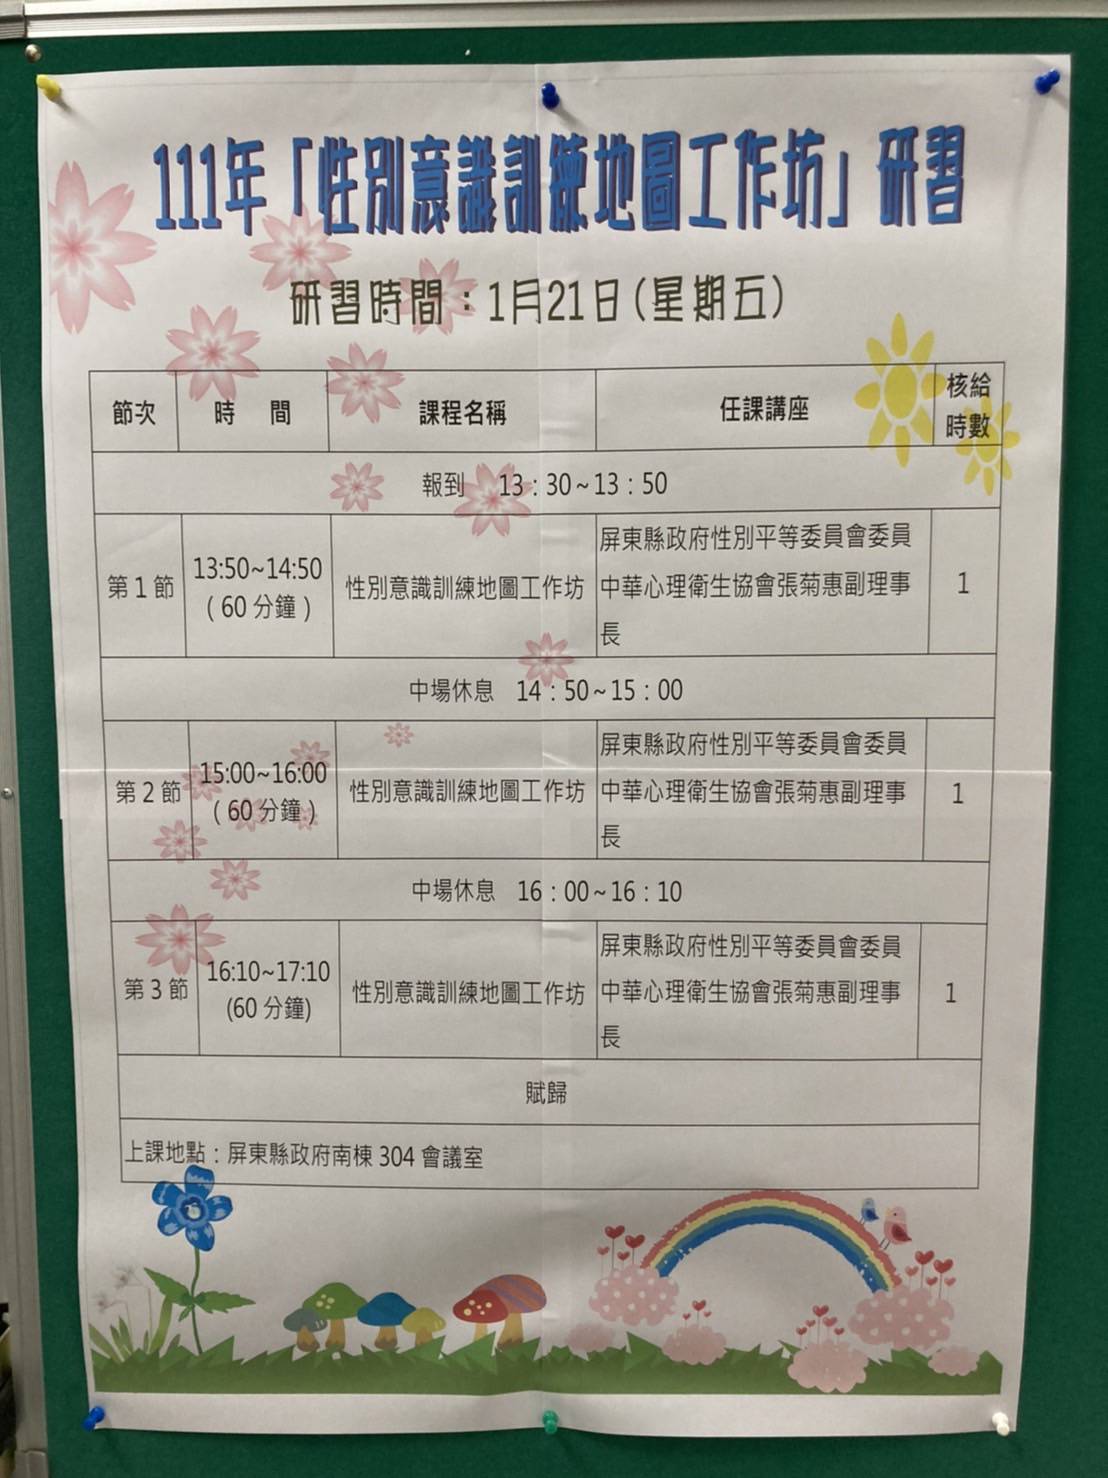 111年「性別意識訓練地圖工作坊」研習
研習時間：1月21日(星期五)
節次 時 間 課程名稱 任課講座 核給
時數
報到 13：30~13：50
第1節 13:50~14:50
(60分鐘) 性別意識訓練地圖工作坊 屏東縣政府性別平等委員會委員
中華心理衛生協會張菊惠副理事
長 1
中場休息 14：50~15：00
第2節 15:00~16:00
(60分鐘) 性別意識訓練地圖工作坊 屏東縣政府性別平等委員會委員
中華心理衛生協會張菊惠副理事
長 1
中場休息 16：00~16：10
第3節 16:10~17:10
(60分鐘) 性別意識訓練地圖工作坊 屏東縣政府性別平等委員會委員
中華心理衛生協會張菊惠副理事
長 1
賦歸
上課地點：屏東縣政府南棟304會議室